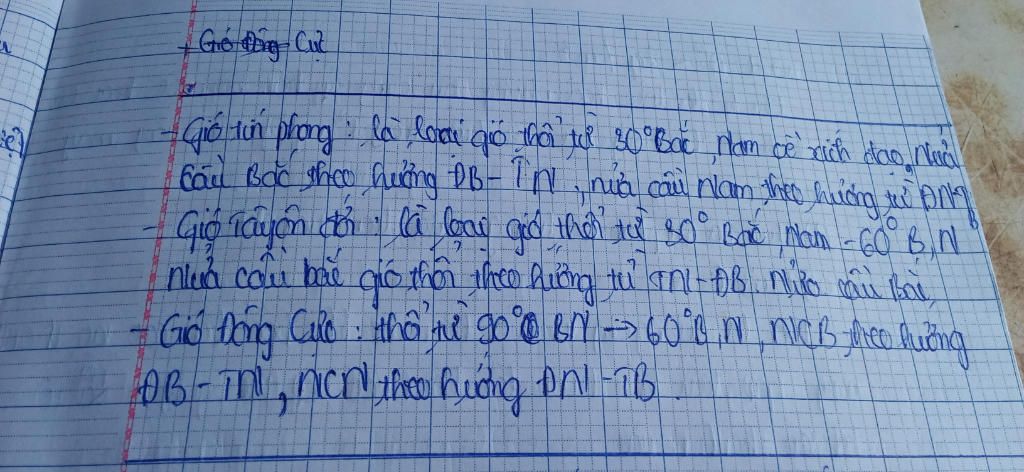 + Gió Đông Cực
- Gió tín phong : là loại gió thổi từ 30° Bắc, Nam về xích đạo, nửa
cầu Bắc theo hướng ĐB - TN, nửa cầu Nam theo hướng từ ĐN-TB
- Gió Tây ôn đới : là loại gió thổi từ 30° Bắc, Nam - 60° B, N
nửa cầu bắc gió thổi theo hướng từ TN - ĐB. nửa cầu
- Gió Đông Cực : thổi từ 90° BN → 60° B, N, NCB theo hướng
ĐB - TN, NCN theo hướng ĐN - TB.